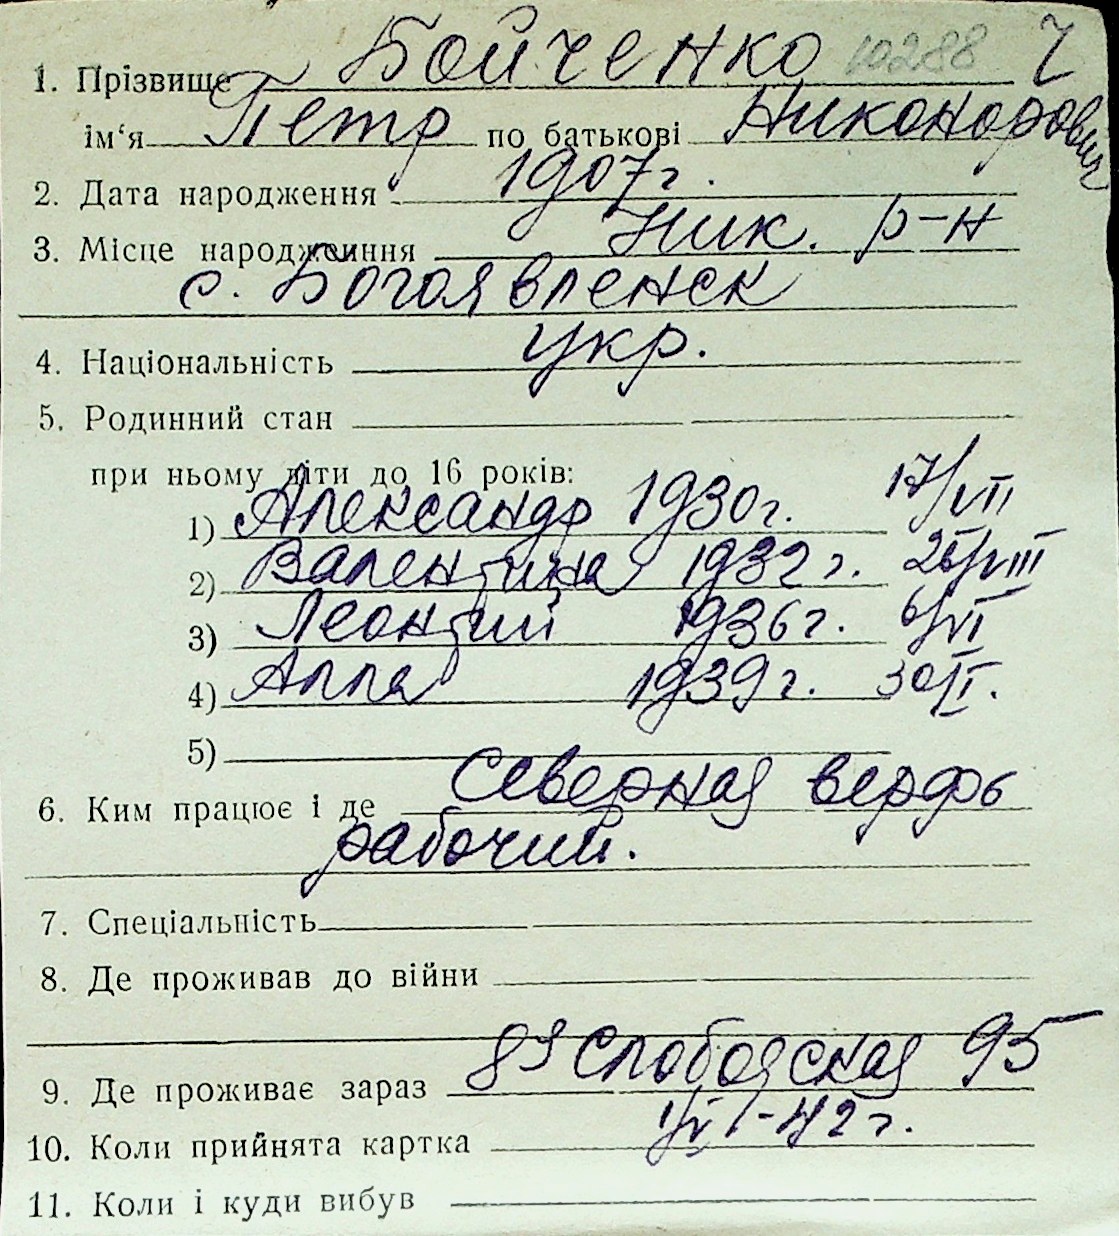 1. Прізвище Бойченко 10288 Ч
ім‘я Петр по батькові Никонорович
2. Дата народження 1907 г.
3. Місце народженння Ник. р-н
с. Богоявленск
4. Національність укр.
5. Родинний стан
при ньому діти до 16 років:
1) Александр 1930 г. 17/VII
2) Валентина 1932 г. 25/VIII
3) Леонтий 1936 г. 6/VI
4) Алла 1939 г. 30/I.
5)
6. Ким працює і де Северная верфь
рабочий.
7. Спеціальність
8. Де проживав до війни
9. Де проживає зараз Слободская 95
10. Коли прийнята картка 1/VI-42 г.
11. Коли і куди вибув